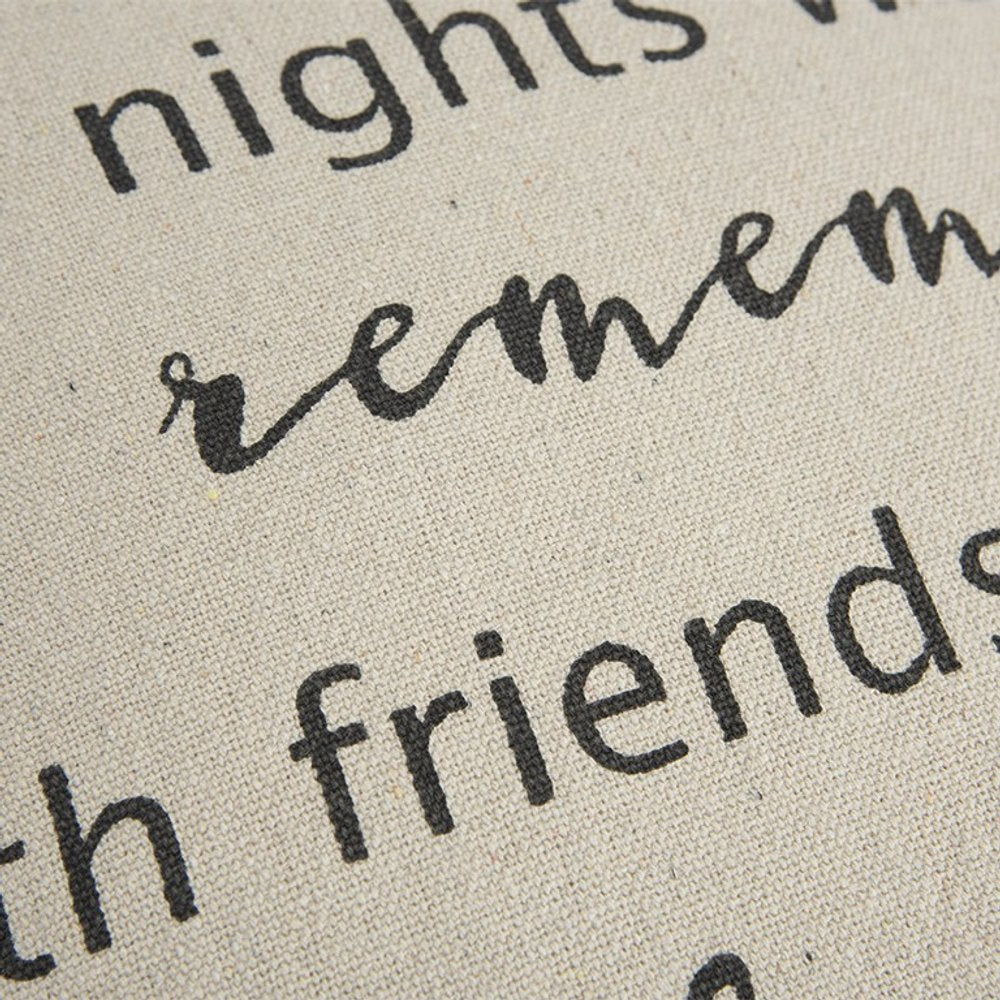 nights
remem
th friends